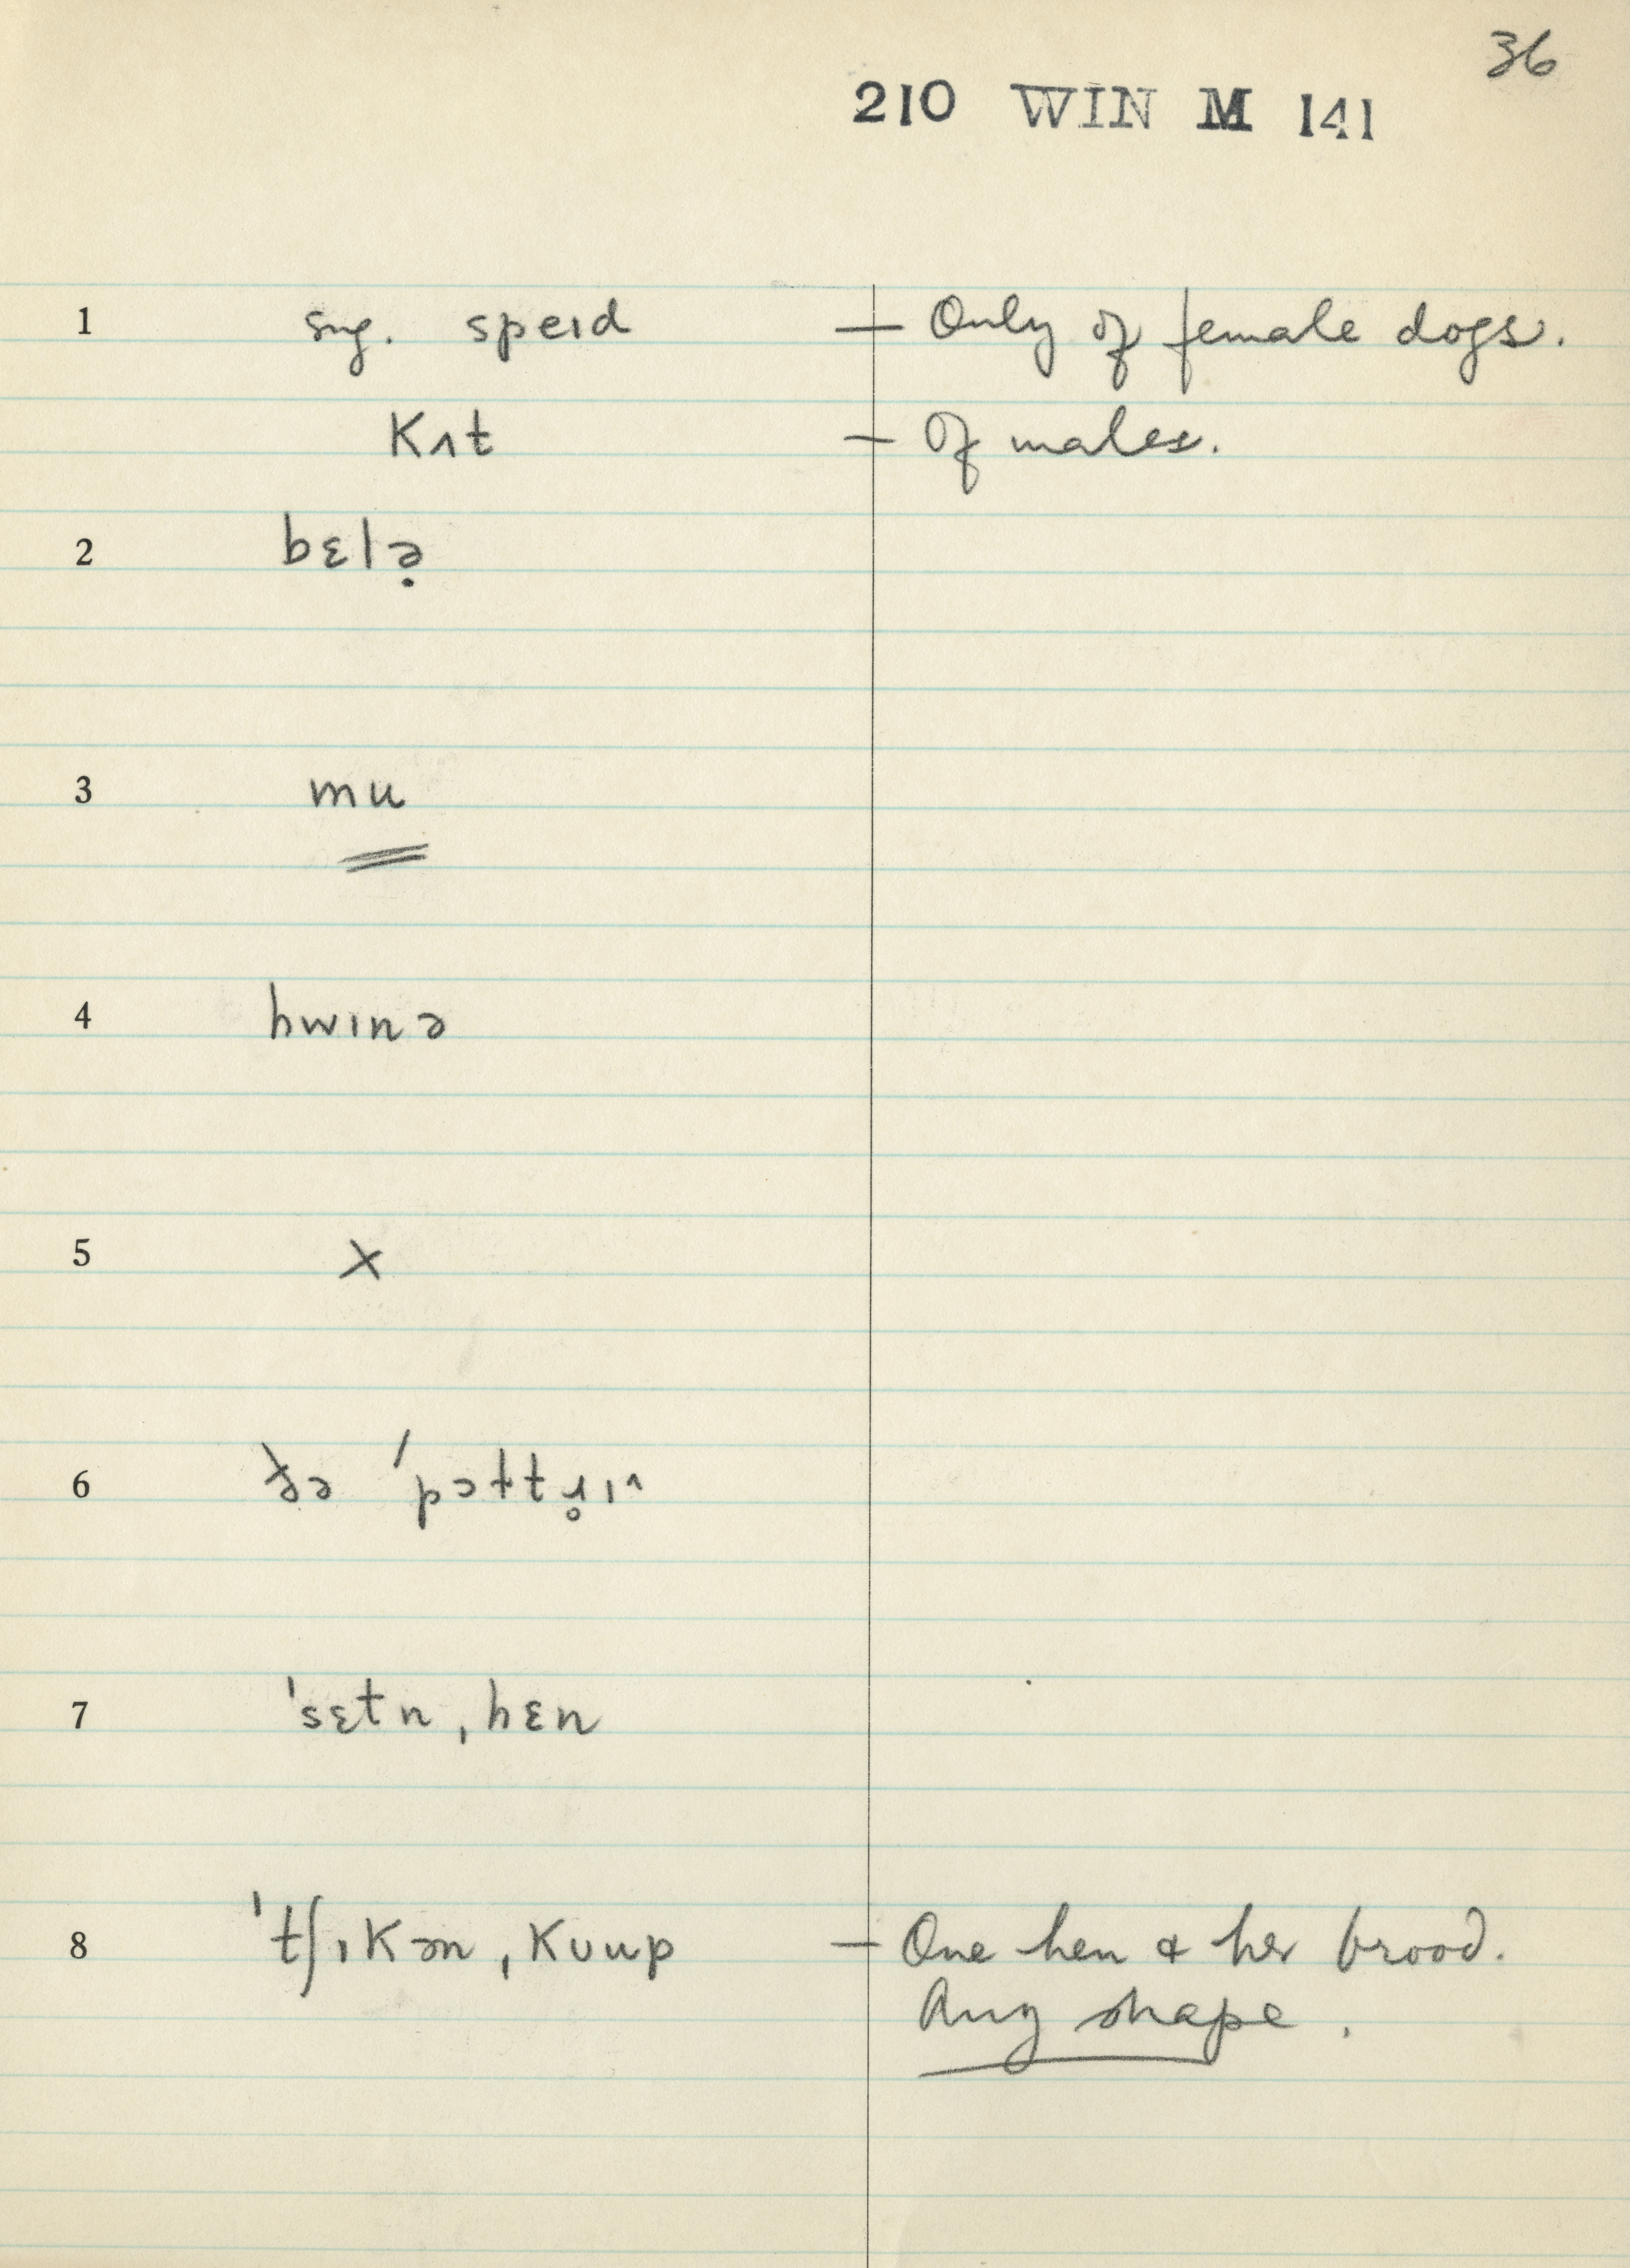 36
210 WIN M 141
1 sug. speɪd — Only of female dogs.
Kʌt — Of males.
2 bɛlə̣
3 mu
4 hwɪnə
5 X
6 ðə 'pəttɹ̥ɪ^
7 'sɛtn, hɛn
8 'tʃɪKən, Kuup — One hen & her brood.
Any shape.